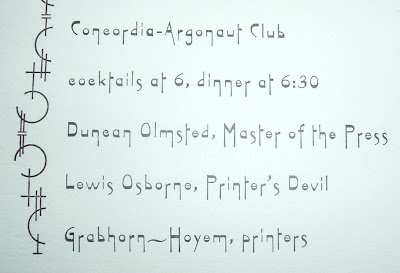 Concordia-Argonaut Club
cocktails at 6, dinner at 6:30
Duncan Olmsted, Master of the Press
Lewis Osborne, Printer's Devil
Grabhorn~Hoyem, printers